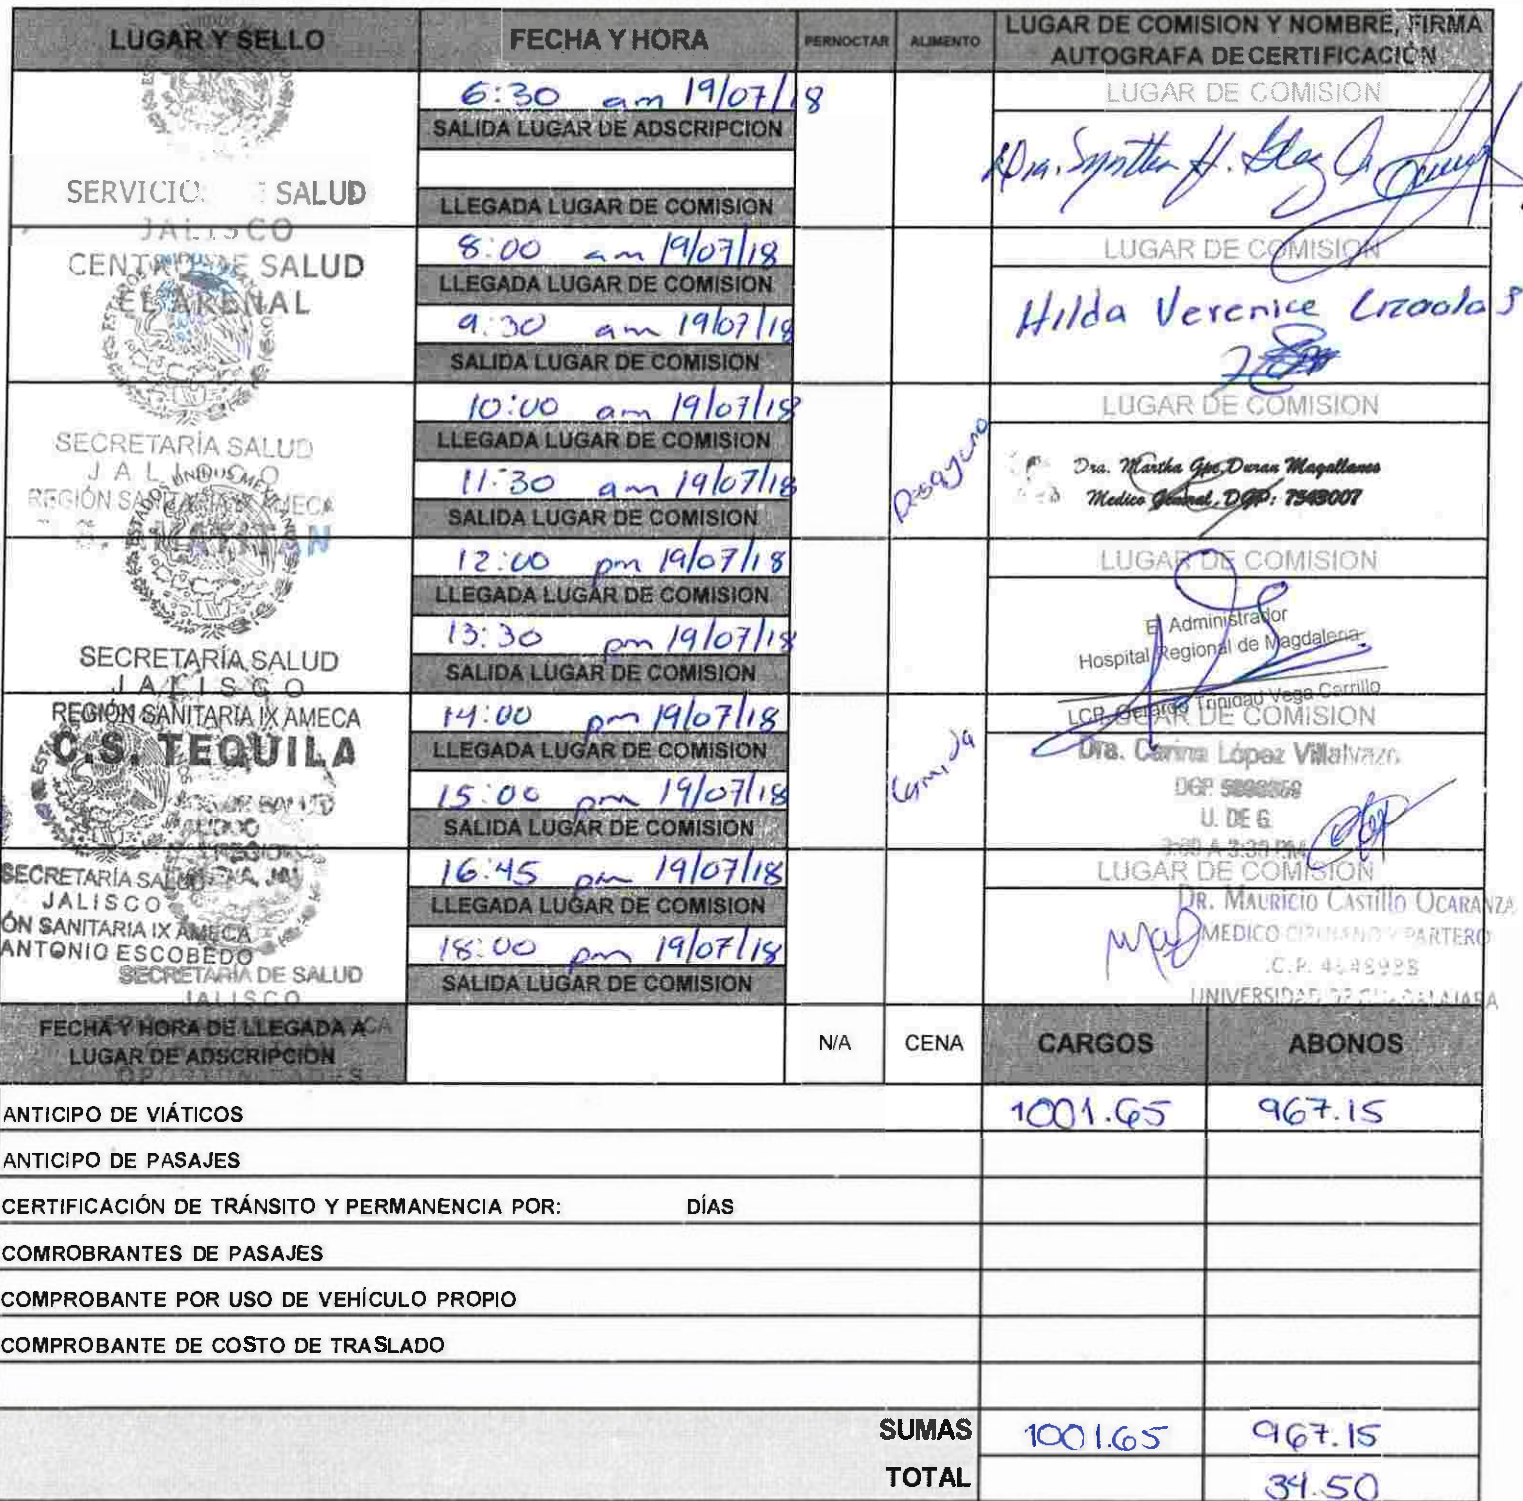 LUGAR Y SELLO FECHA Y HORA PERNOCTAR ALIMENTO LUGAR DE COMISION Y NOMBRE, FIRMA
AUTOGRAFA DE CERTIFICACIÓN
6:30 am 19/07/18
SALIDA LUGAR DE ADSCRIPCION
LUGAR DE COMISION
Dra.
SERVICIO SALUD
JALISCO
CENTRO DE SALUD
EL ARENAL
LLEGADA LUGAR DE COMISION
8:00 am 19/07/18
LLEGADA LUGAR DE COMISION
9:30 am 19/07/18
SALIDA LUGAR DE COMISION
LUGAR DE COMISION
Hilda Verenice Lizaola S
SECRETARÍA SALUD
JALISCO
REGIÓN SANITARIA IX AMECA
10:00 am 19/07/18
LLEGADA LUGAR DE COMISION
11:30 am 19/07/18
SALIDA LUGAR DE COMISION
Desayuno
LUGAR DE COMISION
Dra. Martha Gpe Duran Magallanes
Medico General, DGP: 7343007
12:00 pm 19/07/18
LLEGADA LUGAR DE COMISION
13:30 pm 19/07/18
SALIDA LUGAR DE COMISION
LUGAR DE COMISION
El Administrador
Hospital Regional de Magdalena
LCP. Gerardo Trinidad Vega Carrillo
SECRETARÍA SALUD
JALISCO
REGIÓN SANITARIA IX AMECA
C.S. TEQUILA
14:00 pm 19/07/18
LLEGADA LUGAR DE COMISION
15:00 pm 19/07/18
SALIDA LUGAR DE COMISION
Comida
LUGAR DE COMISION
Dra. Carina López Villalvazo
DGP
U. DE G
A 3:30 PM
SECRETARÍA SALUD
JALISCO
ÓN SANITARIA IX AMECA
ANTONIO ESCOBEDO
SECRETARÍA DE SALUD
JALISCO
16:45 pm 19/07/18
LLEGADA LUGAR DE COMISION
18:00 pm 19/07/18
SALIDA LUGAR DE COMISION
LUGAR DE COMISION
DR. MAURICIO CASTILLO OCARANZA
MEDICO CIRUJANO Y PARTERO
C.P.
UNIVERSIDAD DE GUADALAJARA
FECHA Y HORA DE LLEGADA A
LUGAR DE ADSCRIPCIÓN
N/A CENA CARGOS ABONOS
ANTICIPO DE VIÁTICOS 1001.65 967.15
ANTICIPO DE PASAJES
CERTIFICACIÓN DE TRÁNSITO Y PERMANENCIA POR: DÍAS
COMROBRANTES DE PASAJES
COMPROBANTE POR USO DE VEHÍCULO PROPIO
COMPROBANTE DE COSTO DE TRASLADO
SUMAS 1001.65 967.15
TOTAL 34.50